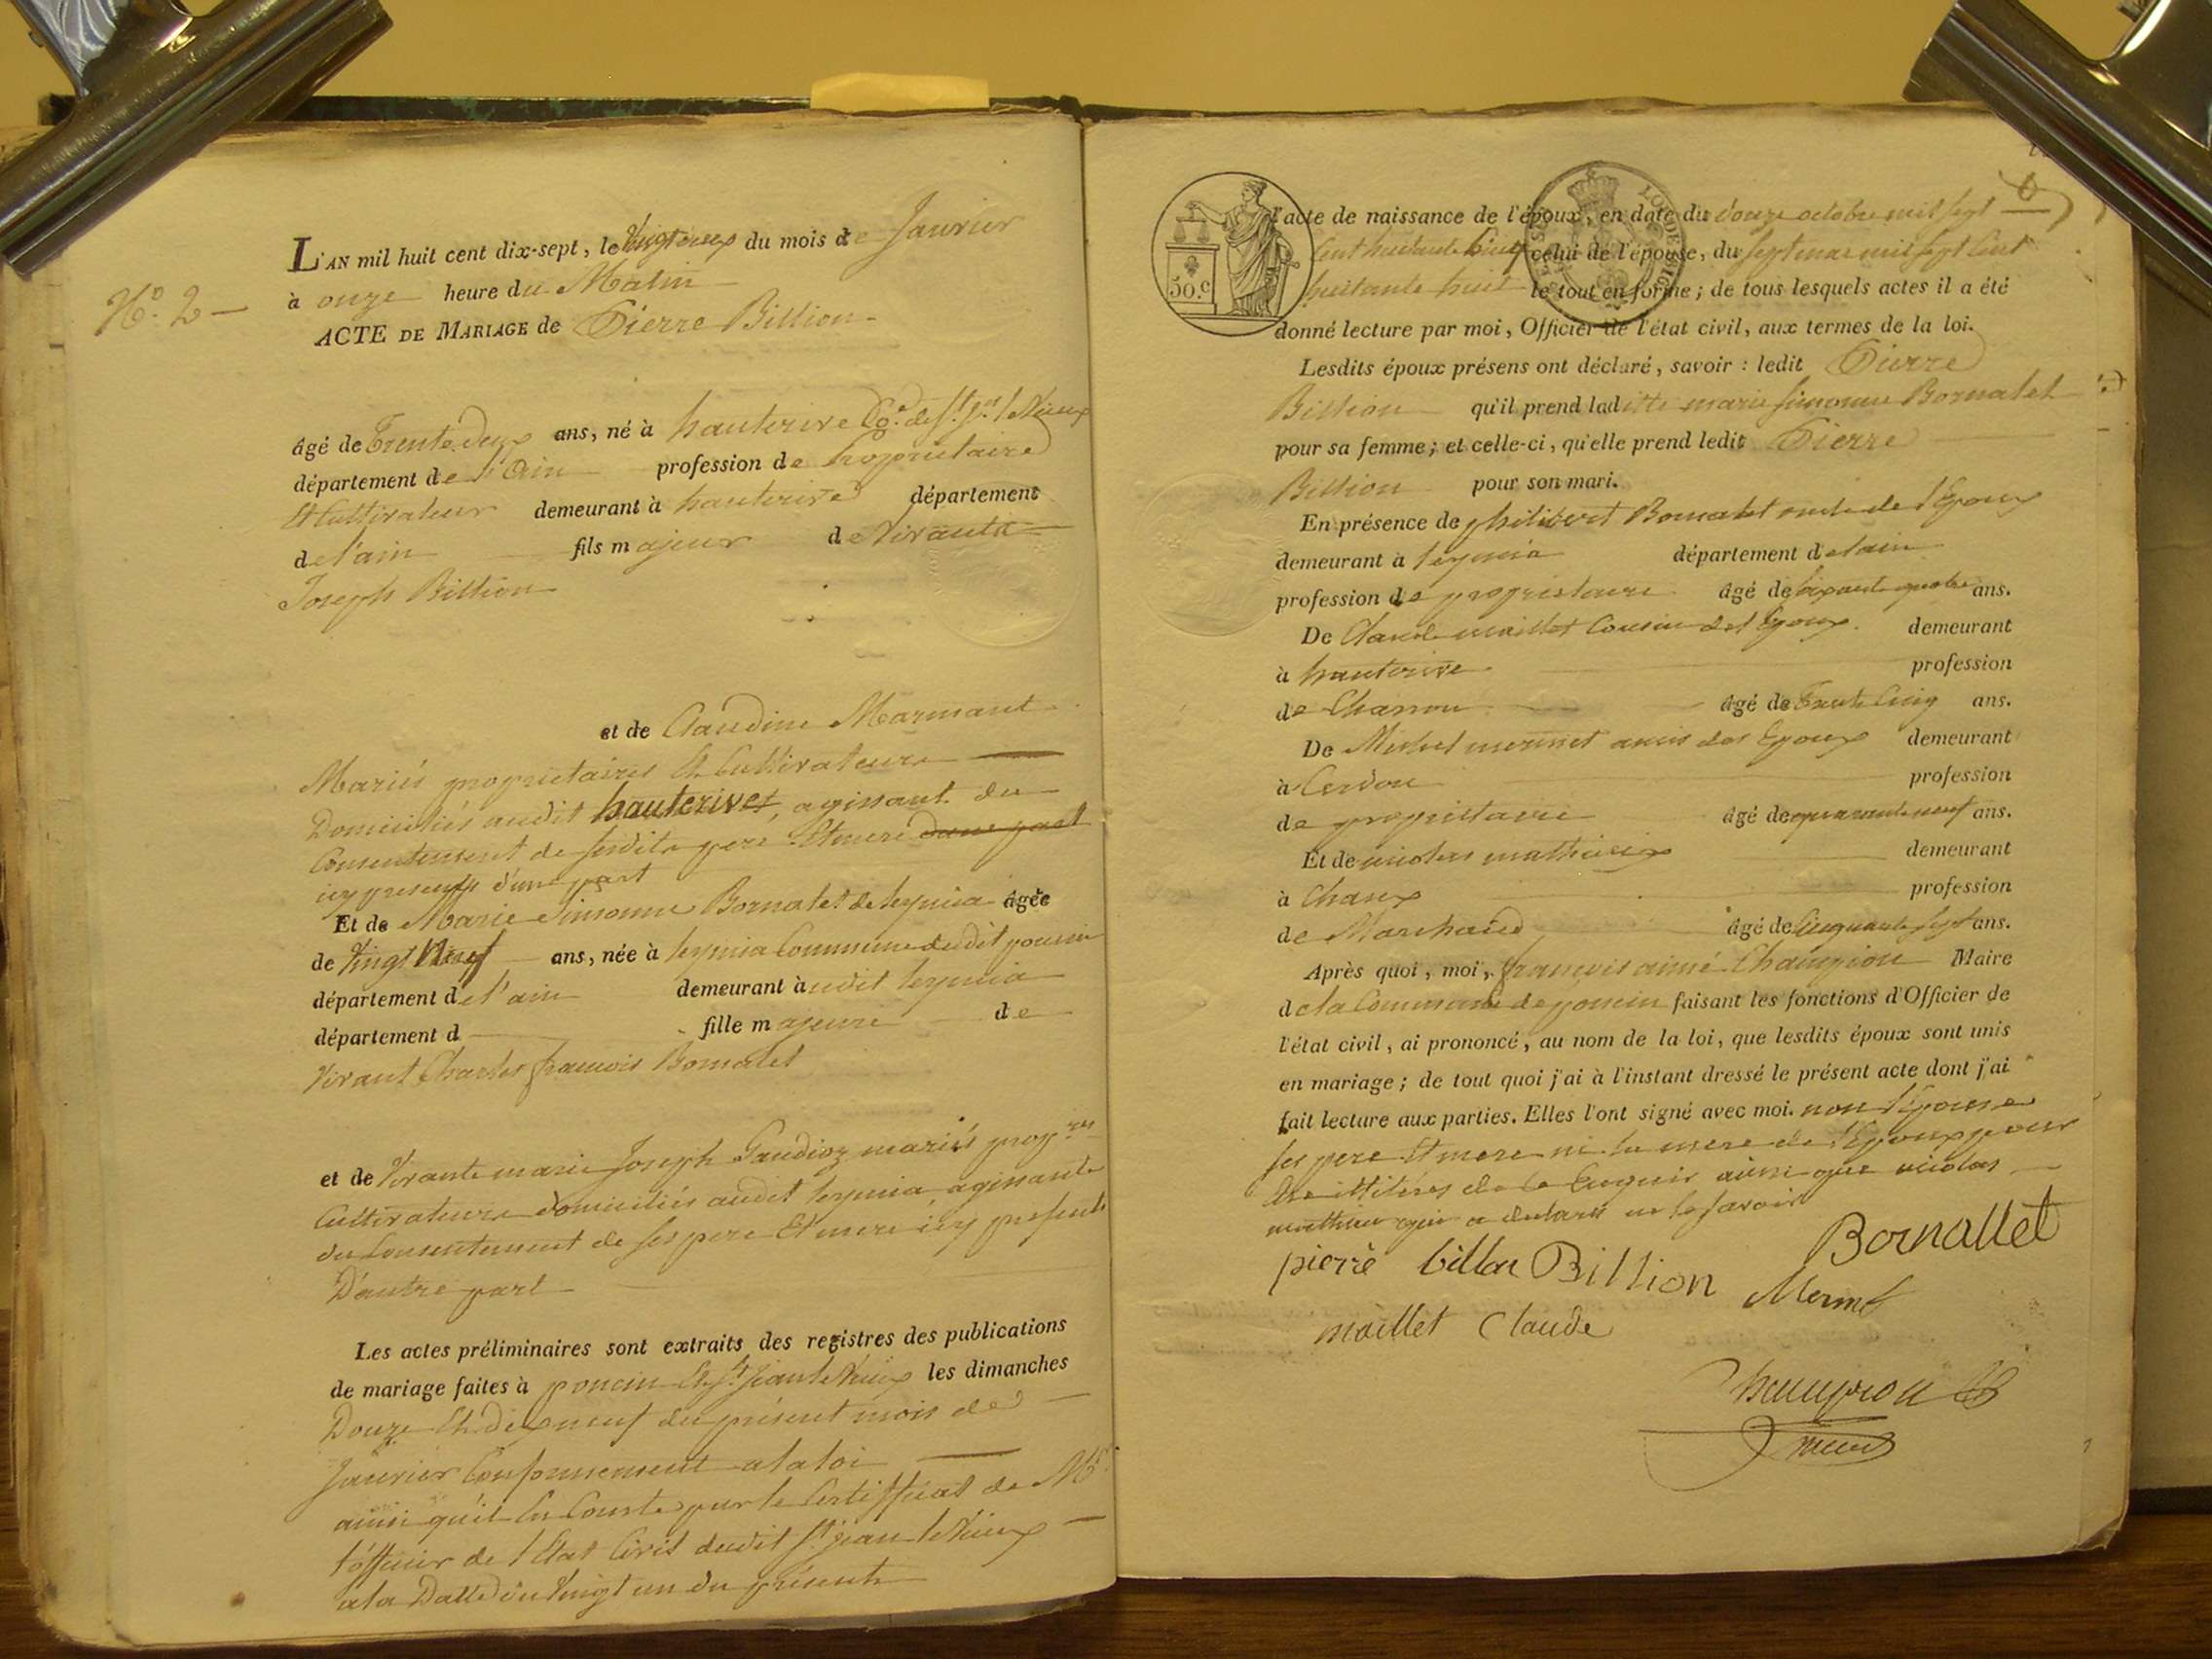 L'AN mil huit cent dix-sept, le vingt deux du mois de Janvier
N.° 2
à onze heure du Matin
ACTE DE MARIAGE de Pierre Billion
âgé de Trente Deux ans, né à hauterive Co. de St. Jn. le Vieux
département de l'Ain profession de propriétaire
Et Cultivateur demeurant à hauterive département
de l'ain fils majeur de Vivants
Joseph Billion
et de Claudine Marmant
Mariés propriétaires Et Cultivateurs
Domiciliés audit hauterive, agissant du
Consentement de sesdits pere Et mere d'une part
icy presents d'une part
Et de Marie Simonne Bornalet de leymia âgée
de Vingt Neuf ans, née à leymia Commune dudit poncin
département de l'ain demeurant audit leymia
département d fille majeure de
Vivant Charles françois Bornalet
et de Vivante marie Joseph Gaudioz mariés prop.res
Cultivateurs domiciliés audit leymia, agissante
du Consentement de ses pere Et mere icy presents
D'autre part
Les actes préliminaires sont extraits des registres des publications
de mariage faites à poncin Et St. jean le Vieux les dimanches
Douze Et dix neuf du présent mois de
Janvier Conformement a la loi
ainsi qu'il En Conste par le Certifficat de Mr.
l'officier de l'Etat Civil dudit St. jean le Vieux
a la Datte du Vingt un du présent
l'acte de naissance de l'époux, en date du douze octobre mil sept
Cent huitante celui de l'épouse, du sept mars mil sept Cent
huitante huit le tout en forme; de tous lesquels actes il a été
50.c
donné lecture par moi, Officier de l'état civil, aux termes de la loi.
Lesdits époux présens ont déclaré, savoir : ledit Pierre
Billion qu'il prend laditte marie simonne Bornalet
pour sa femme; et celle-ci, qu'elle prend ledit Pierre
Billion pour son mari.
En présence de philibert Bornalet oncle de l'Epoux
demeurant à leymia département de lain
profession de propriétaire âgé de soixante quatre ans.
De Claude maillet Cousin del Epoux demeurant
à hauterive profession
de Charron âgé de Trente Cinq ans.
De Michel mermet amis des Epoux demeurant
à Cerdon profession
de propriétaire âgé de quarante neuf ans.
Et de nicolas mathieu demeurant
à profession
de Marchand âgé de Cinquante sept ans.
Après quoi, moi, françois aimé Champion Maire
de la Commune de poncin faisant les fonctions d'Officier de
l'état civil, ai prononcé, au nom de la loi, que lesdits époux sont unis
en mariage; de tout quoi j'ai à l'instant dressé le présent acte dont j'ai
fait lecture aux parties. Elles l'ont signé avec moi. non l'Epouse
ses pere Et mere ni la mere de l'Epoux pour
Etre illitérés de ce Enquis ainsi que nicolas
mathieu qui a declaré ne le savoir
pierre billon Billion Bornallet
maillet Claude Mermet
Champion
maire